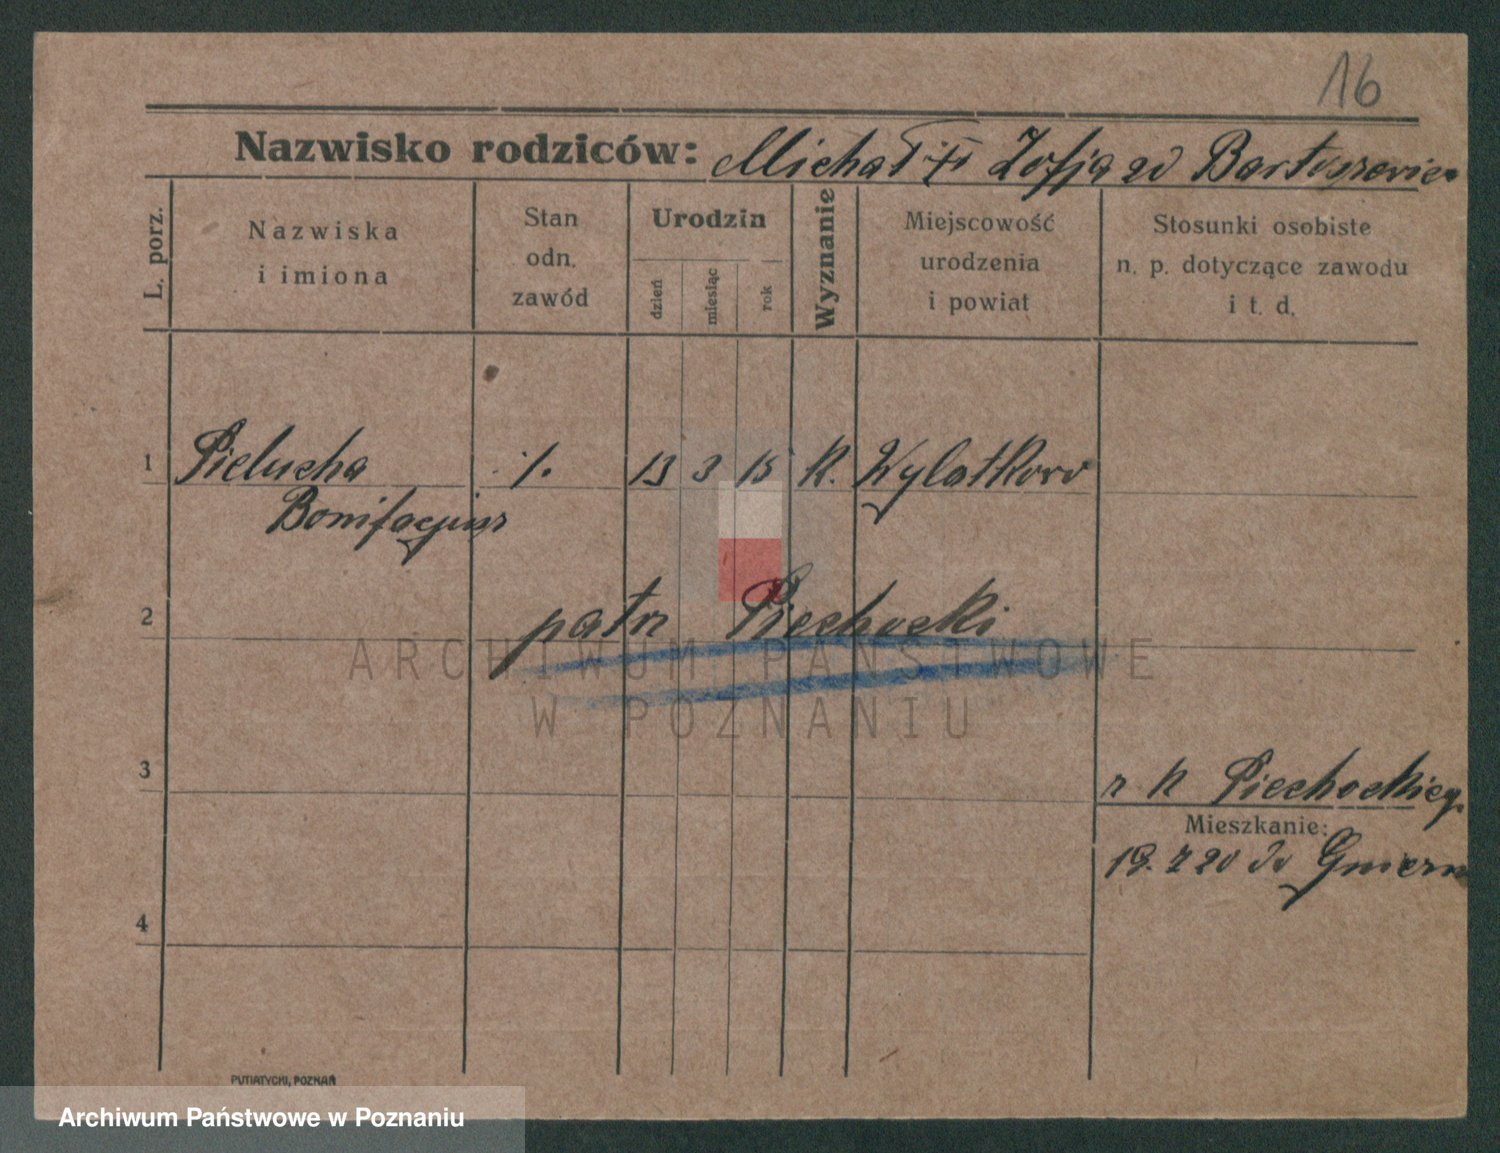 16
Nazwisko rodziców: Michał i Zofja zd Bartoszewicz
L. porz.
Nazwiska
i imiona
Stan
odn.
zawód
Urodzin
dzień
miesiąc
rok
Wyznanie
Miejscowość
urodzenia
i powiat
Stosunki osobiste
n. p. dotyczące zawodu
i t. d.
1 Pielucha /. 13 3 15 K. Wylatkowo
Bonifacjusz
2 patrz Piechocki
ARCHIWUM PAŃSTWOWE
W POZNANIU
3
Piechockieg.
Mieszkanie:
19. 7 20 do
4
PUTIATYCKI, POZNAŃ
Archiwum Państwowe w Poznaniu